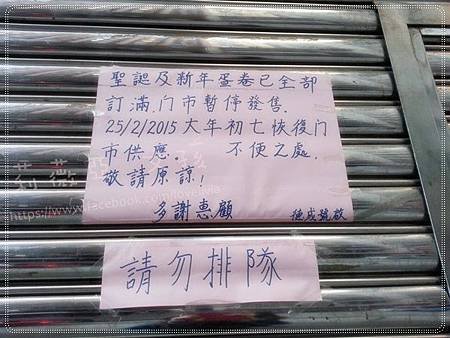 聖誕及新年蛋卷已全部
訂滿,门市暫停發售.
25/2/2015大年初七恢復门
市供應。 不便之處.
敬請原諒!
多謝惠顧 德成號啟
請勿排隊